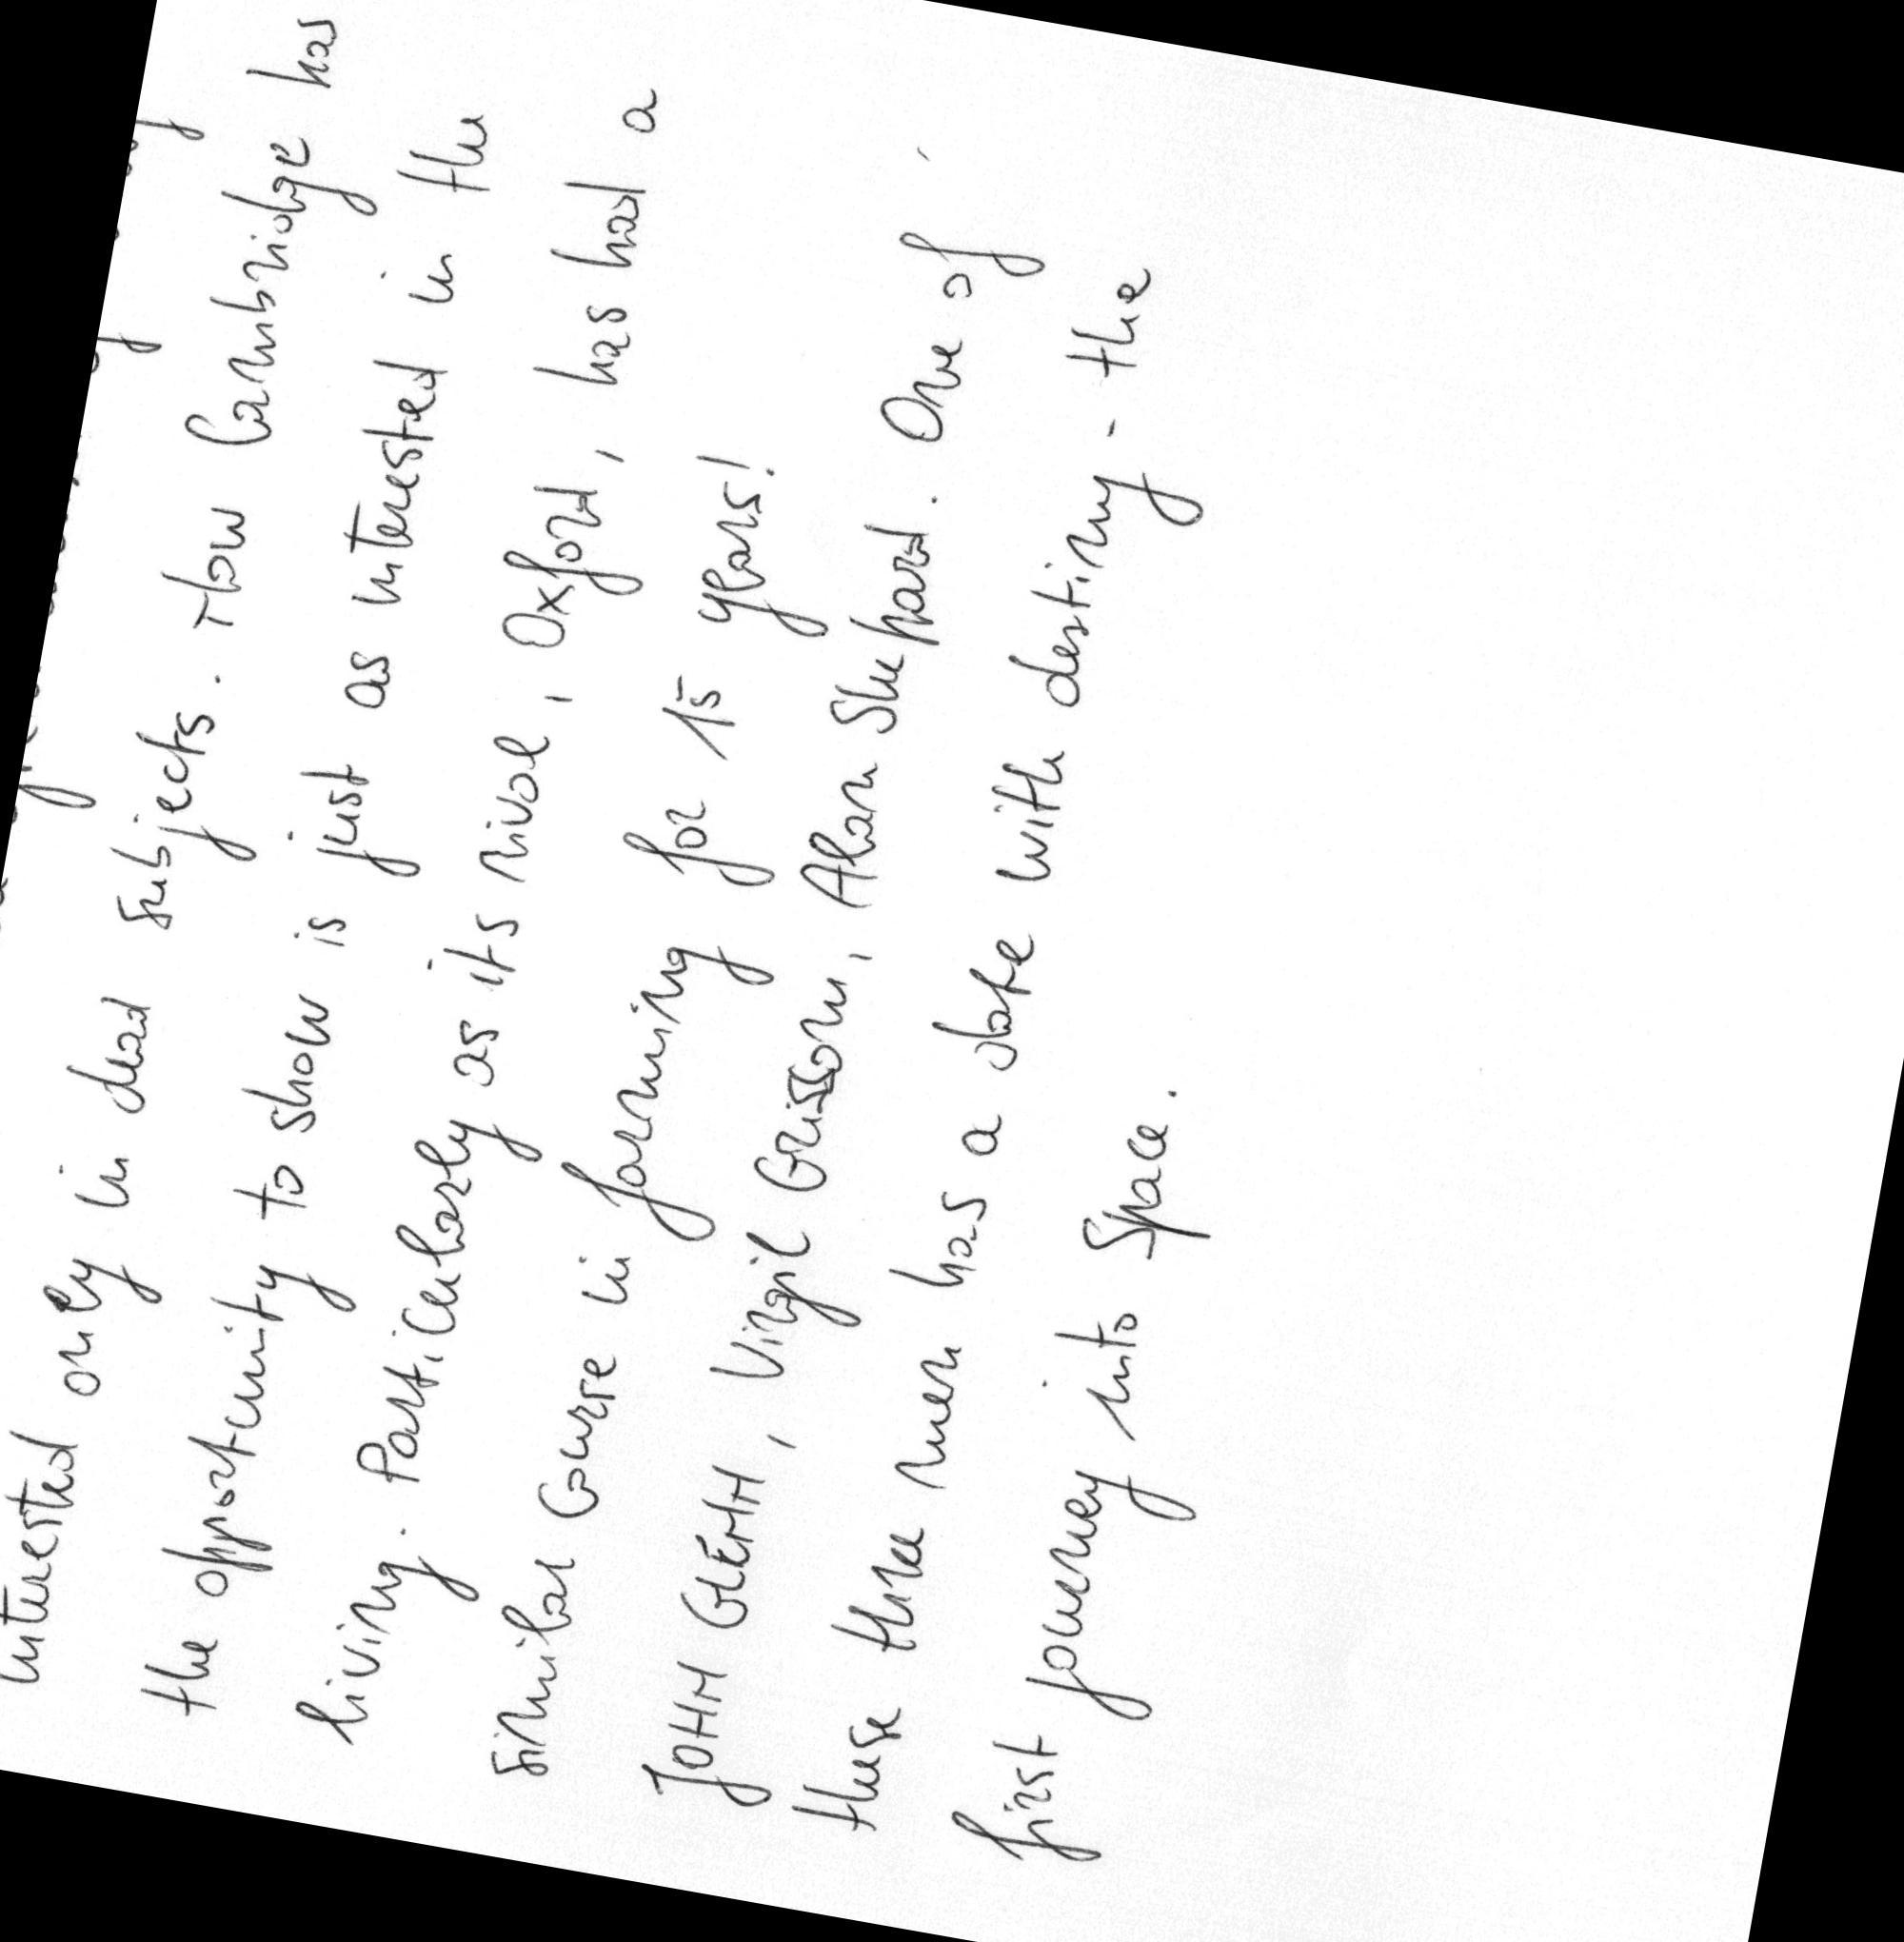 interested only in dead subjects. Now Cambridge has
the opportunity to show is just as interested in the
living. Particularly as its rival, Oxford, has had a
similar course in farming for 15 years!
JOHN GLENN, Virgil Grissom, Alan Shepard. One of
these three men has a date with destiny - the
first journey into Space.